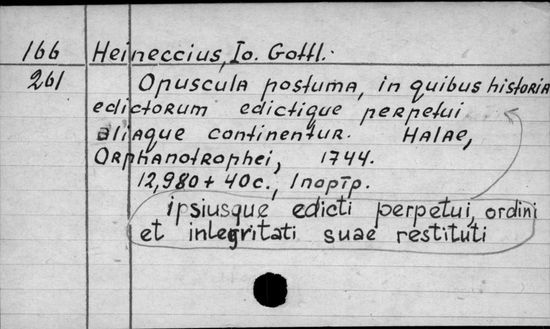 166 Heineccius, Io. Gottl.
261 Opuscula postuma, in quibus historia
edictorum edictique perpetui
aliaque continentur. Halae,
Orphanotrophei, 1744.
12,980 + 40 c., 1 портр.
ipsiusque edicti perpetui, ordini
et integritati suae restituti